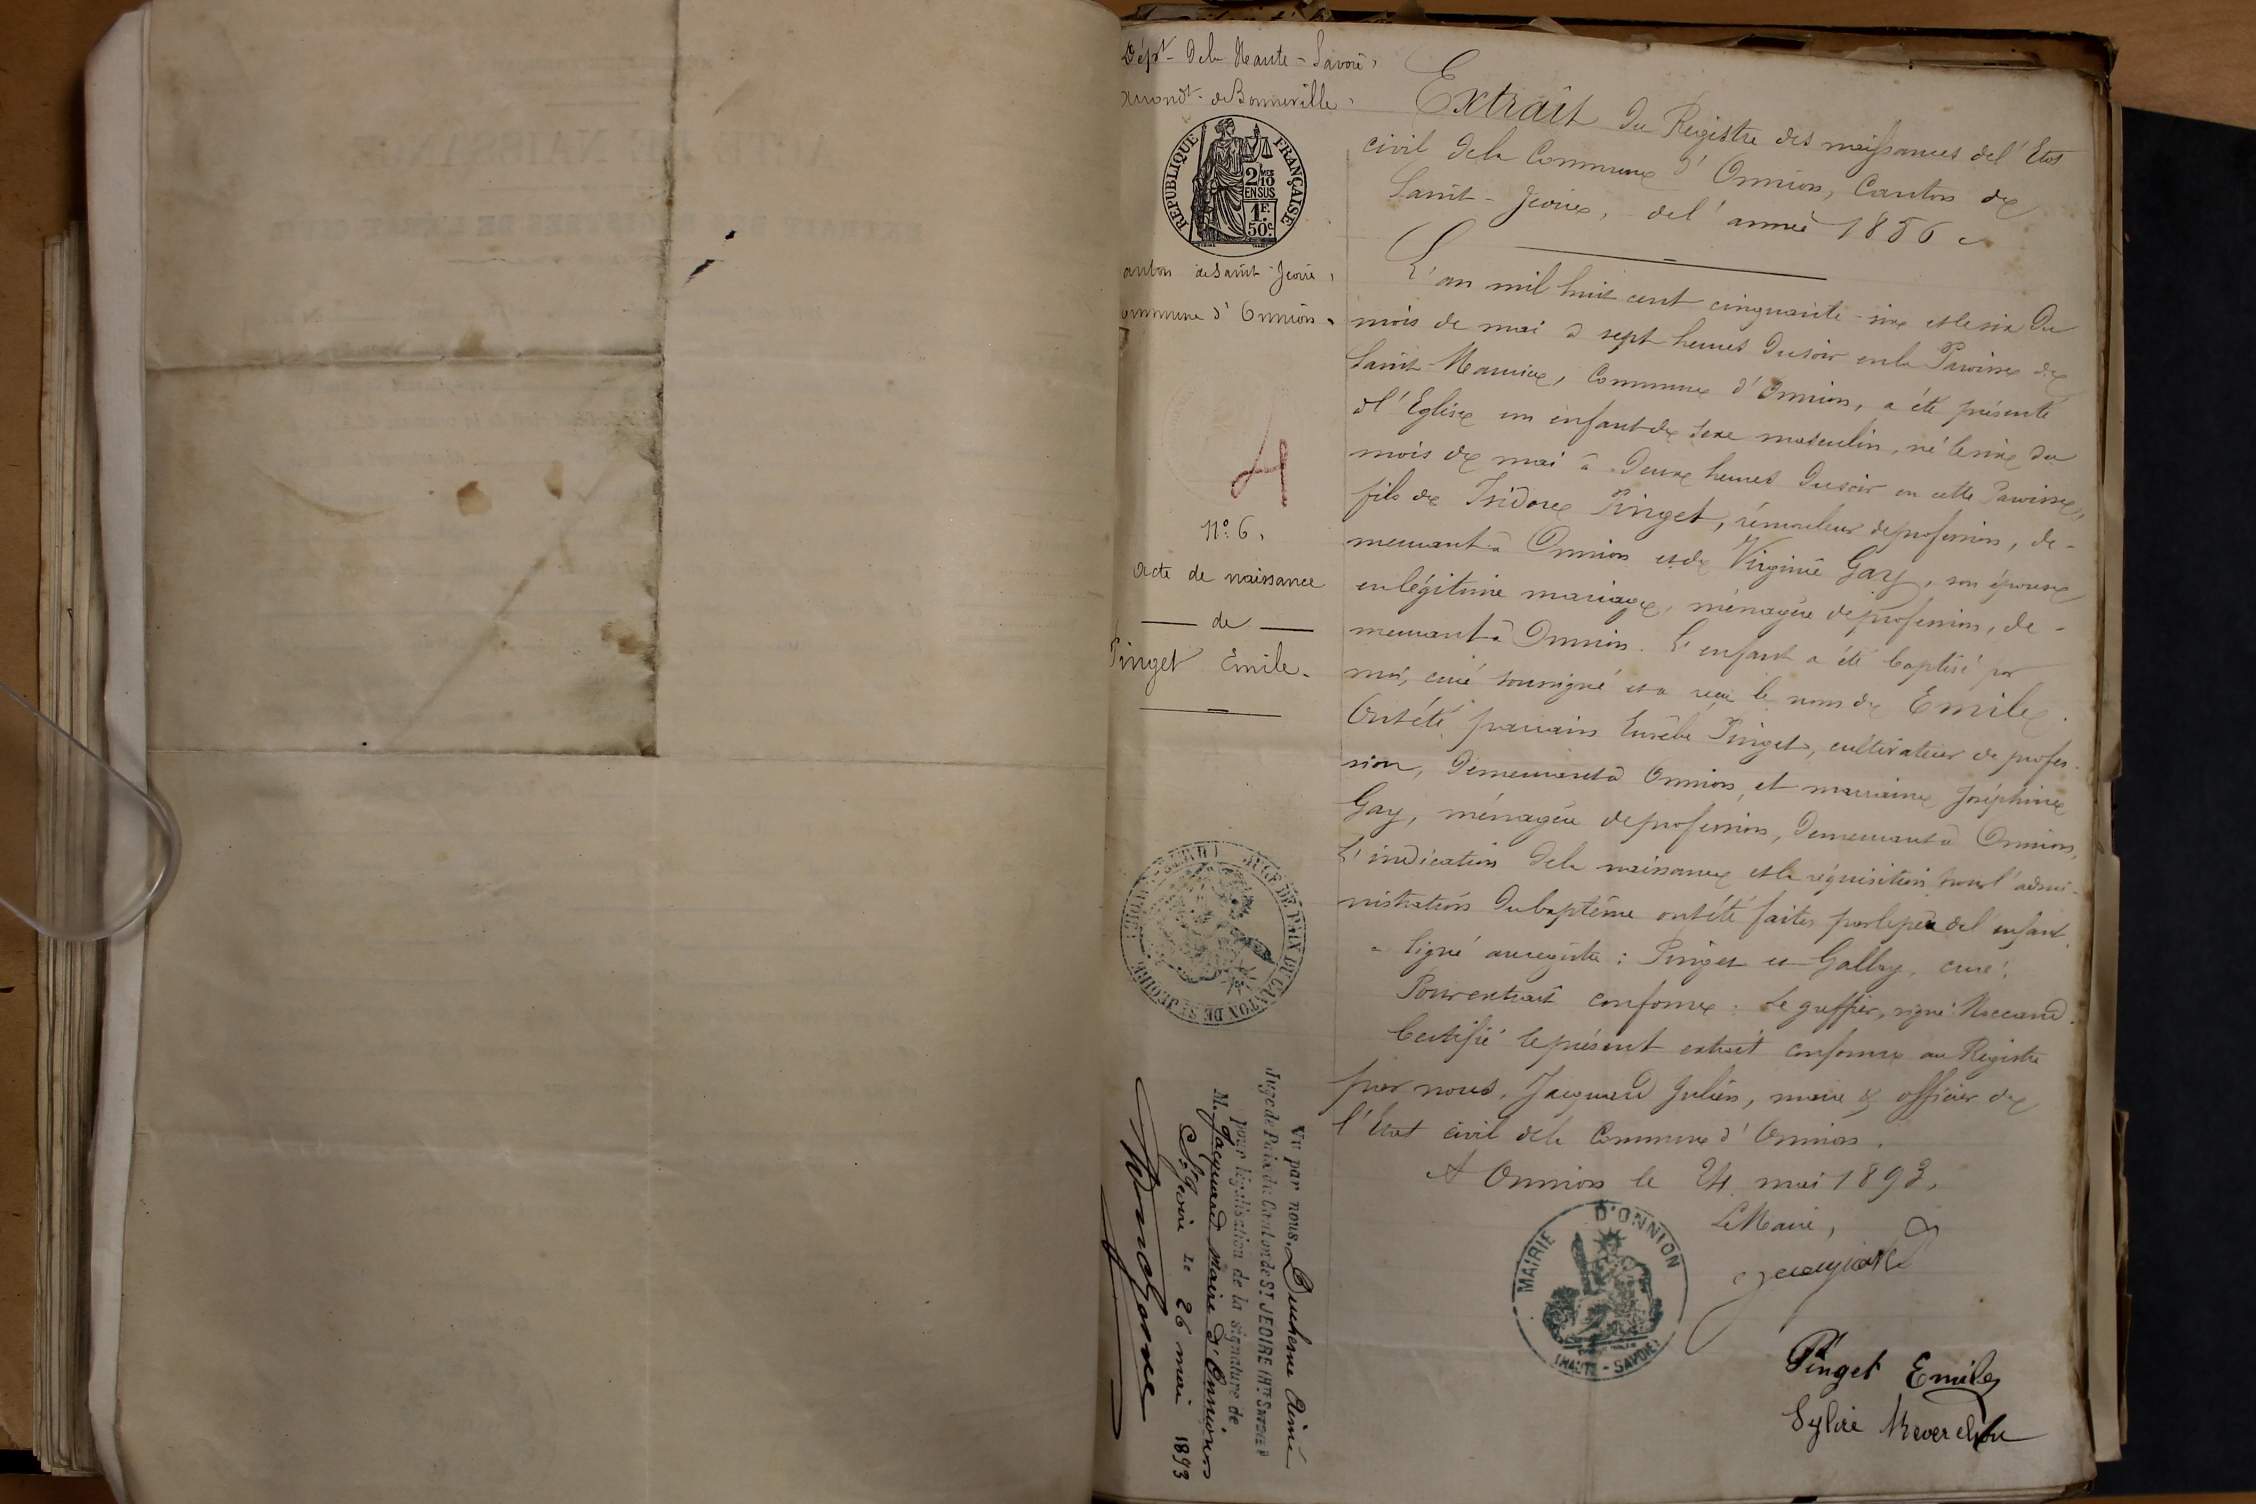 Dépt. de la Haute-Savoie,
Arrondt. de Bonneville.
RÉPUBLIQUE FRANÇAISE
2/10 EN SUS
1F. 50c.
anton de Saint-Jeoire,
ommune d'Onnion.
4
N.o 6.
Acte de naissance
de
Pinget Emile.
JUGE DE PAIX DU CANTON DE ST JEOIRE
Vu par nous, Duchesne Aimé
Juge de Paix du Canton de ST JEOIRE (HTE SAVOIE)
pour légalisation de la signature de
M. Jacquard Maire d'Onnion
St Jeoire le 26 mai 1893
Extrait du Registre des naissances de l'Etat
civil de la Commune d'Onnion, Canton de
Saint-Jeoire, de l'année 1856
L'an mil huit cent cinquante-six et le six du
mois de mai à sept heures du soir en la Paroisse de
Saint-Maurice, Commune d'Onnion, a été présenté
à l'Eglise un enfant de sexe masculin, né le six du
mois de mai à deux heures du soir en cette Paroisse,
fils de Isidore Pinget, rémouleur de profession, de-
meurant à Onnion et de Virginie Gay, son épouse
en légitime mariage, ménagère de profession, de-
meurant à Onnion. L'enfant a été baptisé par
moi, curé soussigné et a reçu le nom de Emile.
Ont été parrains Eusèbe Pinget, cultivateur de profes-
sion, demeurant à Onnion, et marraine Joséphine
Gay, ménagère de profession, demeurant à Onnion,
L'indication de la naissance et la réquisition pour l'admi-
nistration du baptême ont été faites par le père de l'enfant.
- Signé au registre : Pinget et Gallay, curé.
Pour extrait conforme. Le greffier, signé :
Certifié le présent extrait conforme au Registre
par nous, Jacquard Julien, maire & officier de
l'Etat civil de la Commune d'Onnion.
A Onnion le 24 mai 1893,
Le Maire,
Jacquard
MAIRIE D'ONNION
(HAUTE-SAVOIE)
Pinget Emile
Sylvie Reverchon